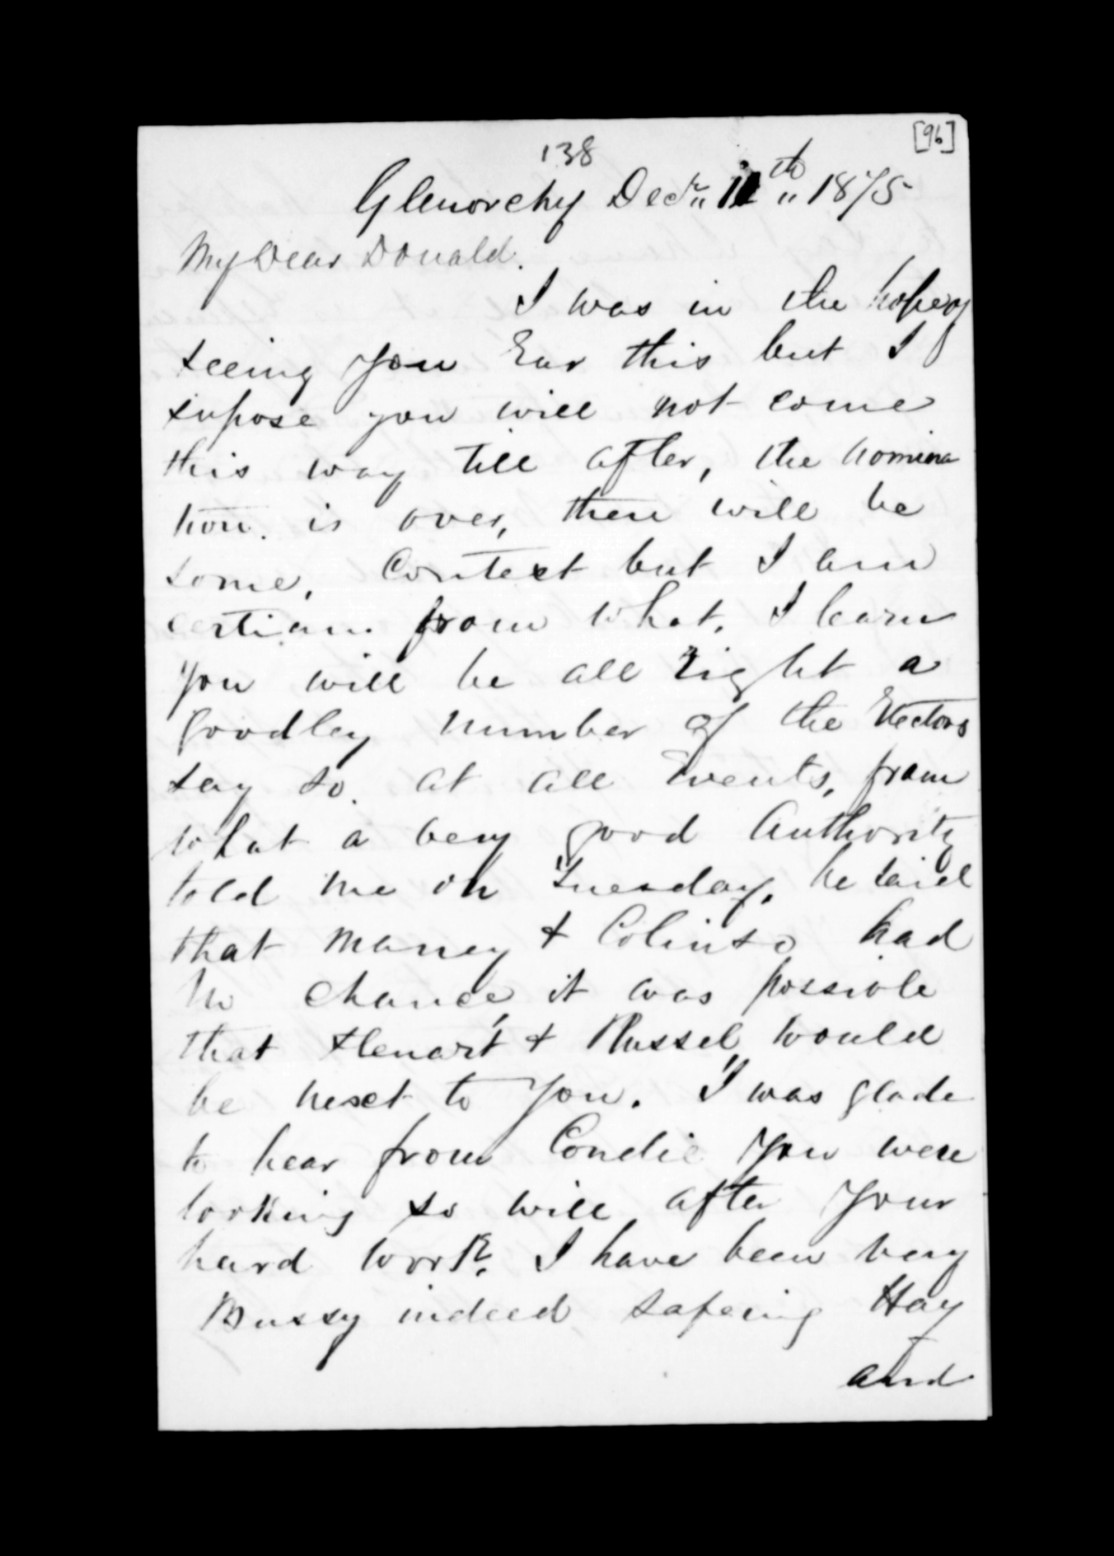 [96]
138
Glenorchy Decr 11th 1875
My Dear Donald.
I was in the hopes of
seeing you Ear this but I
supose you will not come
this way till after, the nomina
tion. is over, there will be
some, Contest but I am
certian. from what. I learn
you will be all right a
goodley number of the Electors
say so. at all Events, from
what a very good Authority
told me on Tuesday, he said
that Maney & Colinso had
no chance, it was possible
that Stenart & Russel would
be next to you. I was glade
to hear from Condie you were
looking so will after your
hard work. I have been very
Bussy indeed safeing Hay
and